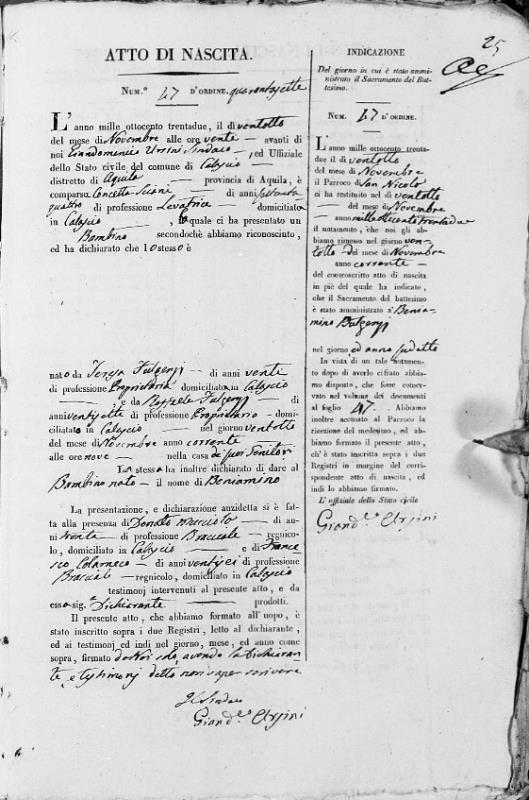 25
ATTO DI NASCITA.
Num.° 47 D'ORDINE, quarantasette
L'anno mille ottocento trentadue, il dì ventotto
del mese di Novembre alle ore venti avanti di
noi Giandomenico Ursini Sindaco, ed Uffiziale
dello Stato civile del comune di Calascio
distretto di Aquila provincia di Aquila, è
comparsa Concetta di anni sessanta
quattro di professione Levatrice domiciliata
in Calascio quale ci ha presentato un
Bambino secondochè abbiamo riconosciuto,
ed ha dichiarato che lo stesso è
nato da Teresa Fulgenzj di anni venti
di professione Proprietaria domiciliata in Calascio
e da Raffaele Fulgenzj di
anni ventisette di professione Proprietario domi-
ciliato in Calascio nel giorno ventotto
del mese di Novembre anno corrente
alle ore nove nella casa de' suoi Genitori
La stessa ha inoltre dichiarato di dare al
Bambino nato il nome di Beniamino
La presentazione, e dichiarazione anzidetta si è fat-
ta alla presenza di Donato di an-
ni trenta di professione Bracciale regnico-
lo, domiciliato in Calascio e di France
sco di anni ventisei di professione
Bracciale regnicolo, domiciliato in Calascio
testimonj intervenuti al presente atto, e da
essa sig.a Dichiarante prodotti.
Il presente atto, che abbiamo formato all'uopo, è
stato inscritto sopra i due Registri, letto al dichiarante,
ed ai testimonj ed indi nel giorno, mese, ed anno come
sopra, firmato da Noi solo, avendo la Dichiaran
te, e testimonj detto non saper scrivere
Il Sindaco
Giand.co Ursini
INDICAZIONE
Del giorno in cui è stato ammi-
nistrato il Sacramento del Bat-
tesimo.
Num. 47 D'ORDINE.
L'anno mille ottocento trentadue
due il dì ventotto
del mese di Novembre
il Parroco di San Nicola
ci ha restituito nel dì ventotto
del mese di Novembre
anno mille ottocento trentadue
il notamento, che noi gli ab-
biamo rimesso nel giorno ven-
totto del mese di Novembre
anno corrente
del controscritto atto di nascita
in piè del quale ha indicato,
che il Sacramento del battesimo
è stato amministrato a Benia-
mino Fulgenzj
nel giorno ed anno sudetto
In vista di un tale notamento
dopo di averlo cifrato abbiamo
disposto, che fosse conser-
vato nel volume dei documenti
al foglio 47. Abbiamo
inoltre accusato al Parroco la
ricezione del medesimo, ed ab-
biamo formato il presente atto,
ch'è stato inscritto sopra i due
Registri in margine del corri-
spondente atto di nascita, ed
indi lo abbiamo firmato.
L'uffiziale dello Stato civile
Giand.co Ursini